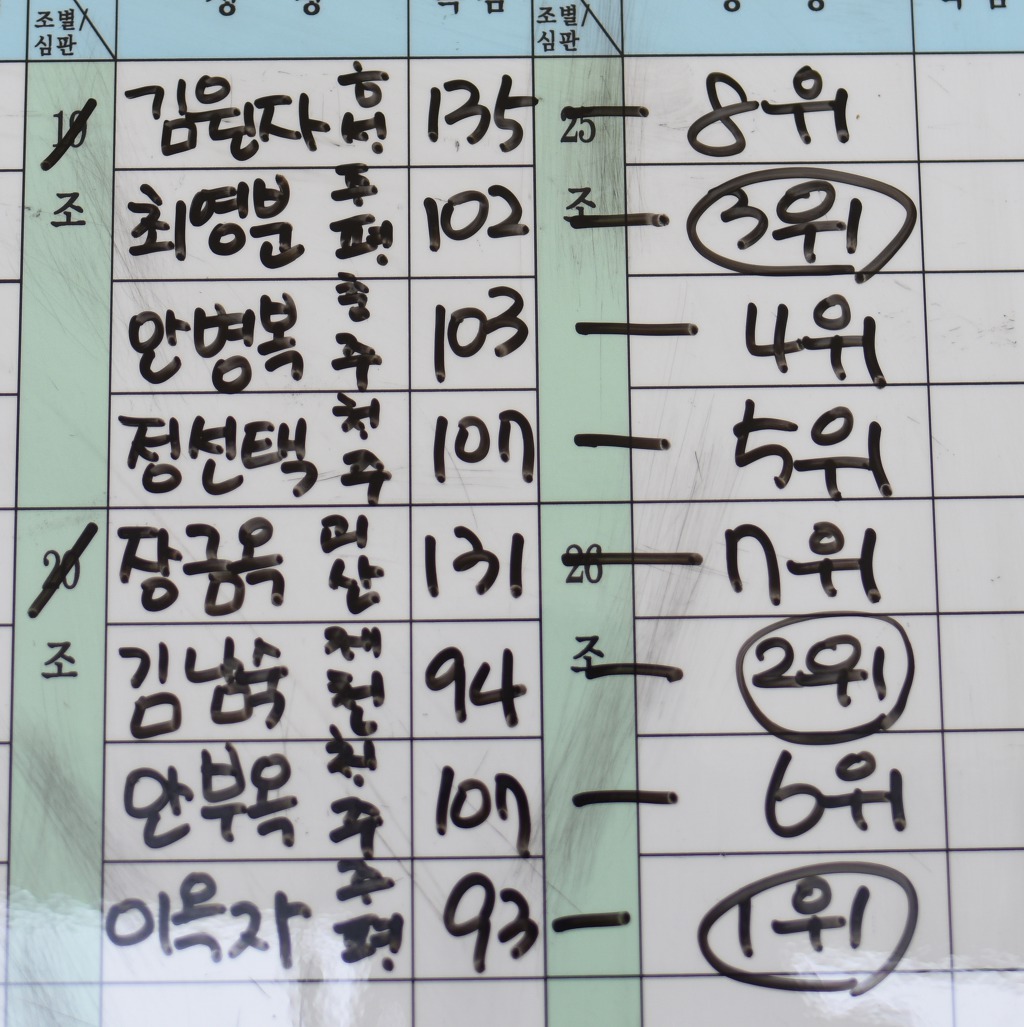 조별/ 심판 조별/ 심판
19 김원자 홍성 135 25 8위
조 최영분 주평 102 조 3위
안병복 충주 103 4위
정선택 청주 107 5위
20 장금옥 괴산 131 26 7위
조 김남숙 제천 94 조 2위
안부옥 청주 107 6위
이옥자 주평 93 1위